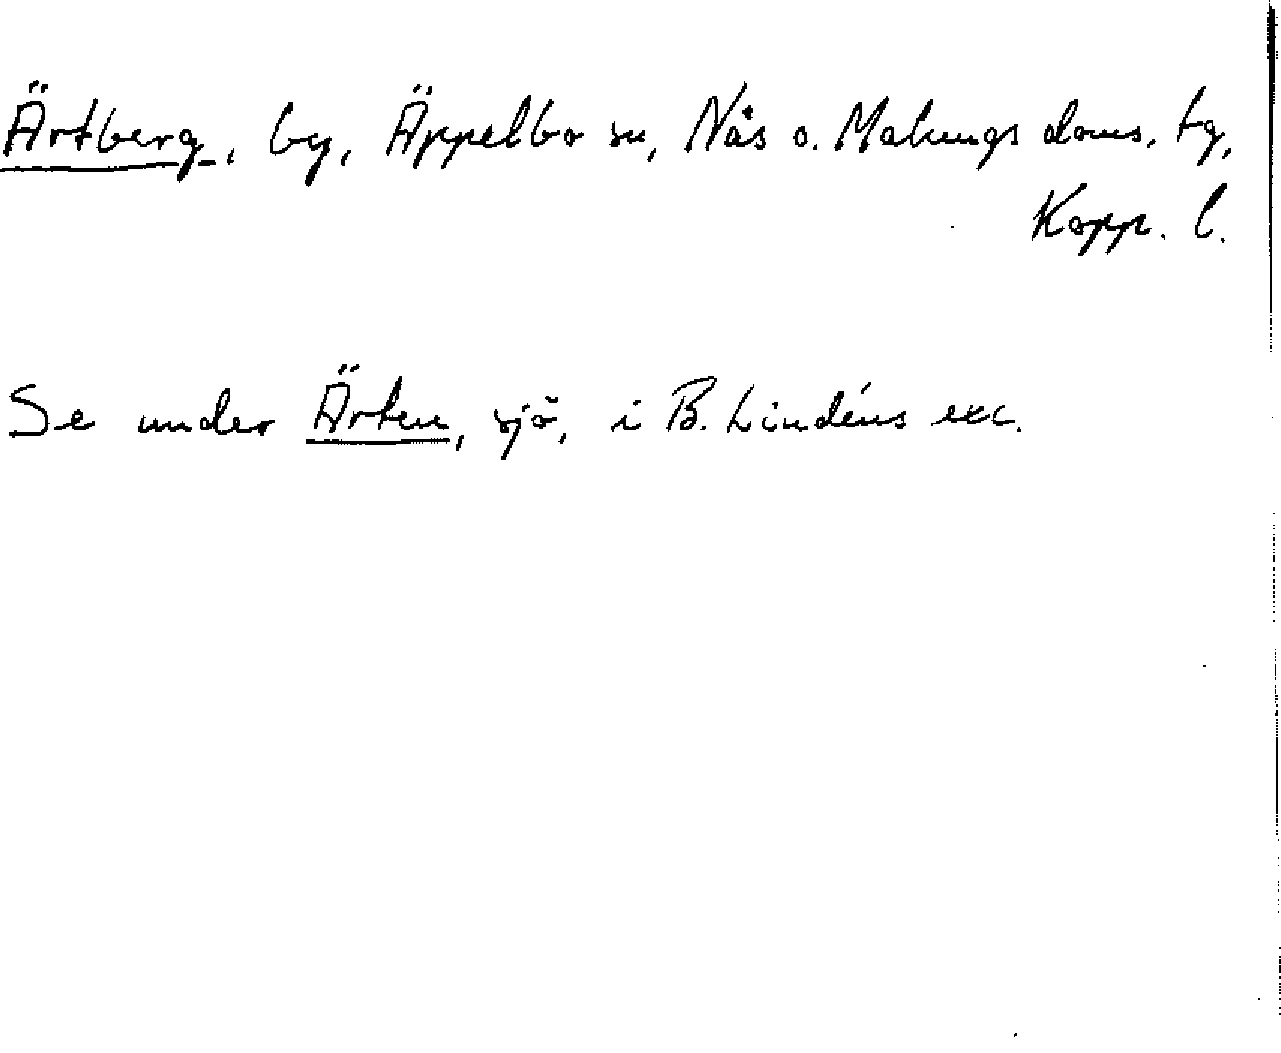 Ärtberg, by, Äppelbo sn, Nås o. Malungs doms. tg,
Kopp. l.
Se under Ärten, sjö, i B. Lindéns exc.